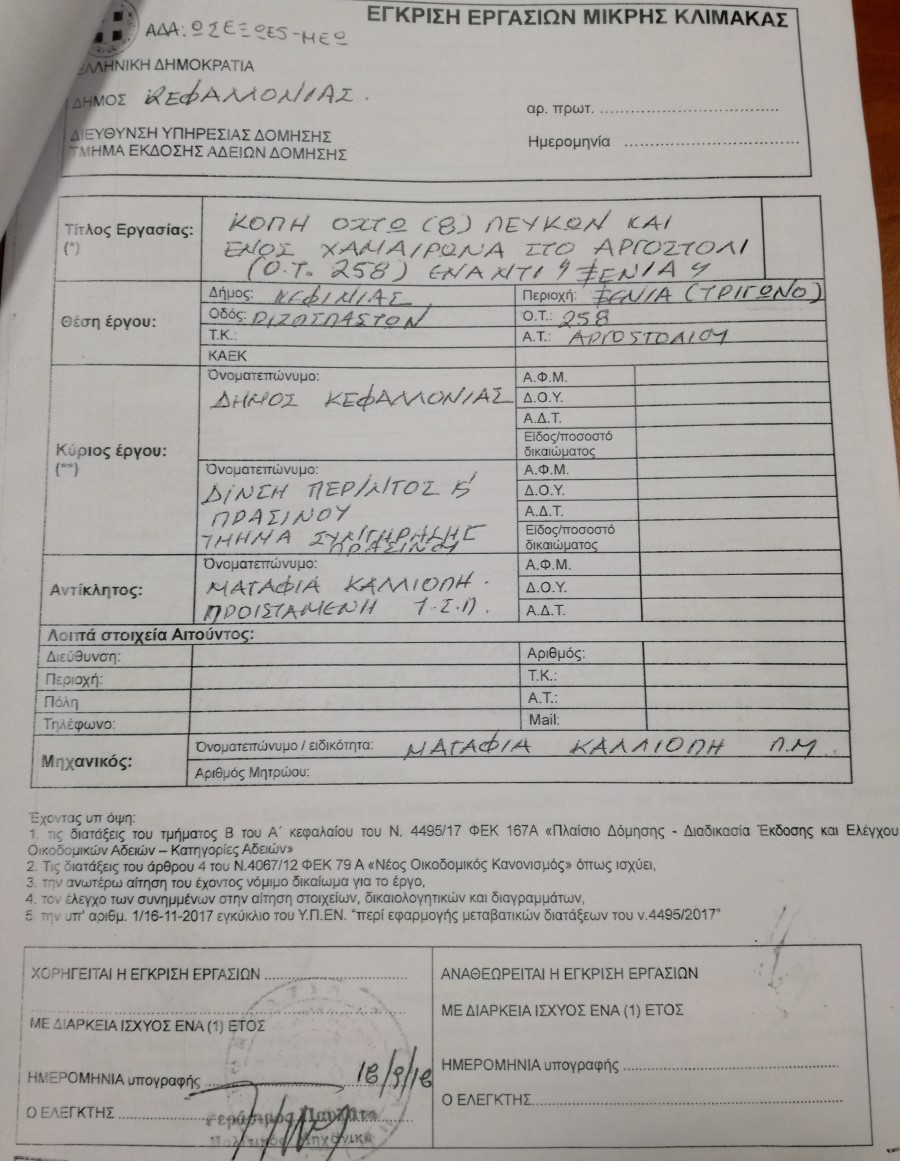 ΕΓΚΡΙΣΗ ΕΡΓΑΣΙΩΝ ΜΙΚΡΗΣ ΚΛΙΜΑΚΑΣ
ΑΔΑ:
ΕΛΛΗΝΙΚΗ ΔΗΜΟΚΡΑΤΙΑ
ΔΗΜΟΣ ΚΕΦΑΛΛΟΝΙΑΣ.
αρ. πρωτ. ...............
ΔΙΕΥΘΥΝΣΗ ΥΠΗΡΕΣΙΑΣ ΔΟΜΗΣΗΣ
Ημερομηνία ...............
ΤΜΗΜΑ ΕΚΔΟΣΗΣ ΑΔΕΙΩΝ ΔΟΜΗΣΗΣ
Τίτλος Εργασίας:
(*)
ΚΟΠΗ ΟΧΤΩ (8) ΠΕΥΚΩΝ ΚΑΙ
ΕΝΟΣ ΧΑΜΑΙΡΩΠΑ ΣΤΟ ΑΡΓΟΣΤΟΛΙ
(Ο.Τ. 258) ΕΝΑΝΤΙ "ΞΕΝΙΑ"
Θέση έργου:
Δήμος: ΚΕΦ/ΝΙΑΣ Περιοχή: ΞΕΝΙΑ (ΤΡΙΓΩΝΟ)
Οδός: ΡΙΖΟΣΠΑΣΤΩΝ Ο.Τ.: 258
Τ.Κ.: Α.Τ.: ΑΡΓΟΣΤΟΛΙΟΥ
ΚΑΕΚ
Κύριος έργου:
(**)
Όνοματεπώνυμο: Α.Φ.Μ.
ΔΗΜΟΣ ΚΕΦΑΛΛΟΝΙΑΣ Δ.Ο.Υ.
Α.Δ.Τ.
Είδος/ποσοστό
δικαιώματος
Όνοματεπώνυμο: Α.Φ.Μ.
Δ/ΝΣΗ ΠΕΡ/ΝΤΟΣ Κ' Δ.Ο.Υ.
ΠΡΑΣΙΝΟΥ Α.Δ.Τ.
ΤΜΗΜΑ ΣΥΝΤΗΡΗΣΗΣ Είδος/ποσοστό
ΠΡΑΣΙΝΟΥ δικαιώματος
Αντίκλητος:
Όνοματεπώνυμο: Α.Φ.Μ.
ΜΑΤΑΦΙΑ ΚΑΛΛΙΟΠΗ. Δ.Ο.Υ.
ΠΡΟΙΣΤΑΜΕΝΗ Τ.Σ.Π. Α.Δ.Τ.
Λοιπά στοιχεία Αιτούντος:
Διεύθυνση: Αριθμός:
Περιοχή: Τ.Κ.:
Πόλη Α.Τ.:
Τηλέφωνο: Mail:
Μηχανικός:
Όνοματεπώνυμο / ειδικότητα: ΜΑΤΑΦΙΑ ΚΑΛΛΙΟΠΗ Π.Μ.
Αριθμός Μητρώου:
Έχοντας υπ όψη:
1. τις διατάξεις του τμήματος Β του Α΄ κεφαλαίου του Ν. 4495/17 ΦΕΚ 167Α «Πλαίσιο Δόμησης - Διαδικασία Έκδοσης και Ελέγχου
Οικοδομικών Αδειών – Κατηγορίες Αδειών»
2. Τις διατάξεις του άρθρου 4 του Ν.4067/12 ΦΕΚ 79 Α «Νέος Οικοδομικός Κανονισμός» όπως ισχύει,
3. την ανωτέρω αίτηση του έχοντος νόμιμο δικαίωμα για το έργο,
4. τον έλεγχο των συνημμένων στην αίτηση στοιχείων, δικαιολογητικών και διαγραμμάτων,
5. την υπ' αριθμ. 1/16-11-2017 εγκύκλιο του Υ.Π.ΕΝ. "περί εφαρμογής μεταβατικών διατάξεων του ν.4495/2017"
ΧΟΡΗΓΕΙΤΑΙ Η ΕΓΚΡΙΣΗ ΕΡΓΑΣΙΩΝ ...............
ΜΕ ΔΙΑΡΚΕΙΑ ΙΣΧΥΟΣ ΕΝΑ (1) ΕΤΟΣ
ΗΜΕΡΟΜΗΝΙΑ υπογραφής ............... 18/9/18
Ο ΕΛΕΓΚΤΗΣ ...............
ΑΝΑΘΕΩΡΕΙΤΑΙ Η ΕΓΚΡΙΣΗ ΕΡΓΑΣΙΩΝ
ΜΕ ΔΙΑΡΚΕΙΑ ΙΣΧΥΟΣ ΕΝΑ (1) ΕΤΟΣ
ΗΜΕΡΟΜΗΝΙΑ υπογραφής ...............
Ο ΕΛΕΓΚΤΗΣ...............